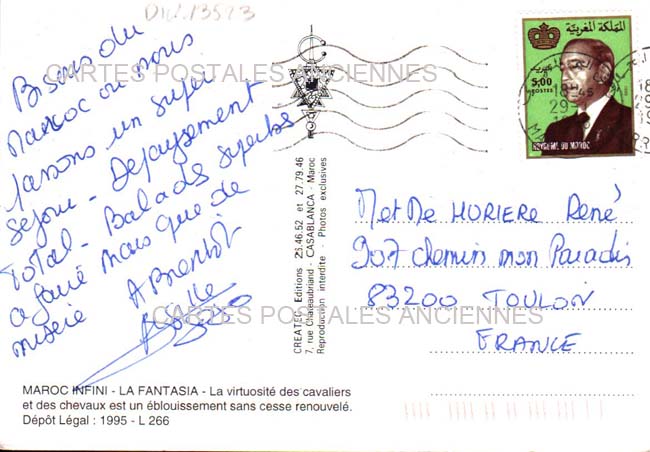 Diu.13523
Bisous du
Maroc ou nous
passons un super
sejour - Depaysement
total - Balades superbes
a faire mais que de
misère A Bientôt
CARTES POSTALES ANCIENNES
CREATEC Editions 26.46.52 et 27.79.46
7, rue Chateaubriand - CASABLANCA - Maroc
Reproduction interdite - Photos exclusives
المملكة المغربية
5,00
POSTES
ROYAUME DU MAROC
M et Me MORIERE René
907 chemin mon Paradis
83200 TOULON
FRANCE
CARTES POSTALES ANCIENNES
MAROC INFINI - LA FANTASIA - La virtuosité des cavaliers
et des chevaux est un éblouissement sans cesse renouvelé.
Dépôt Légal : 1995 - L 266